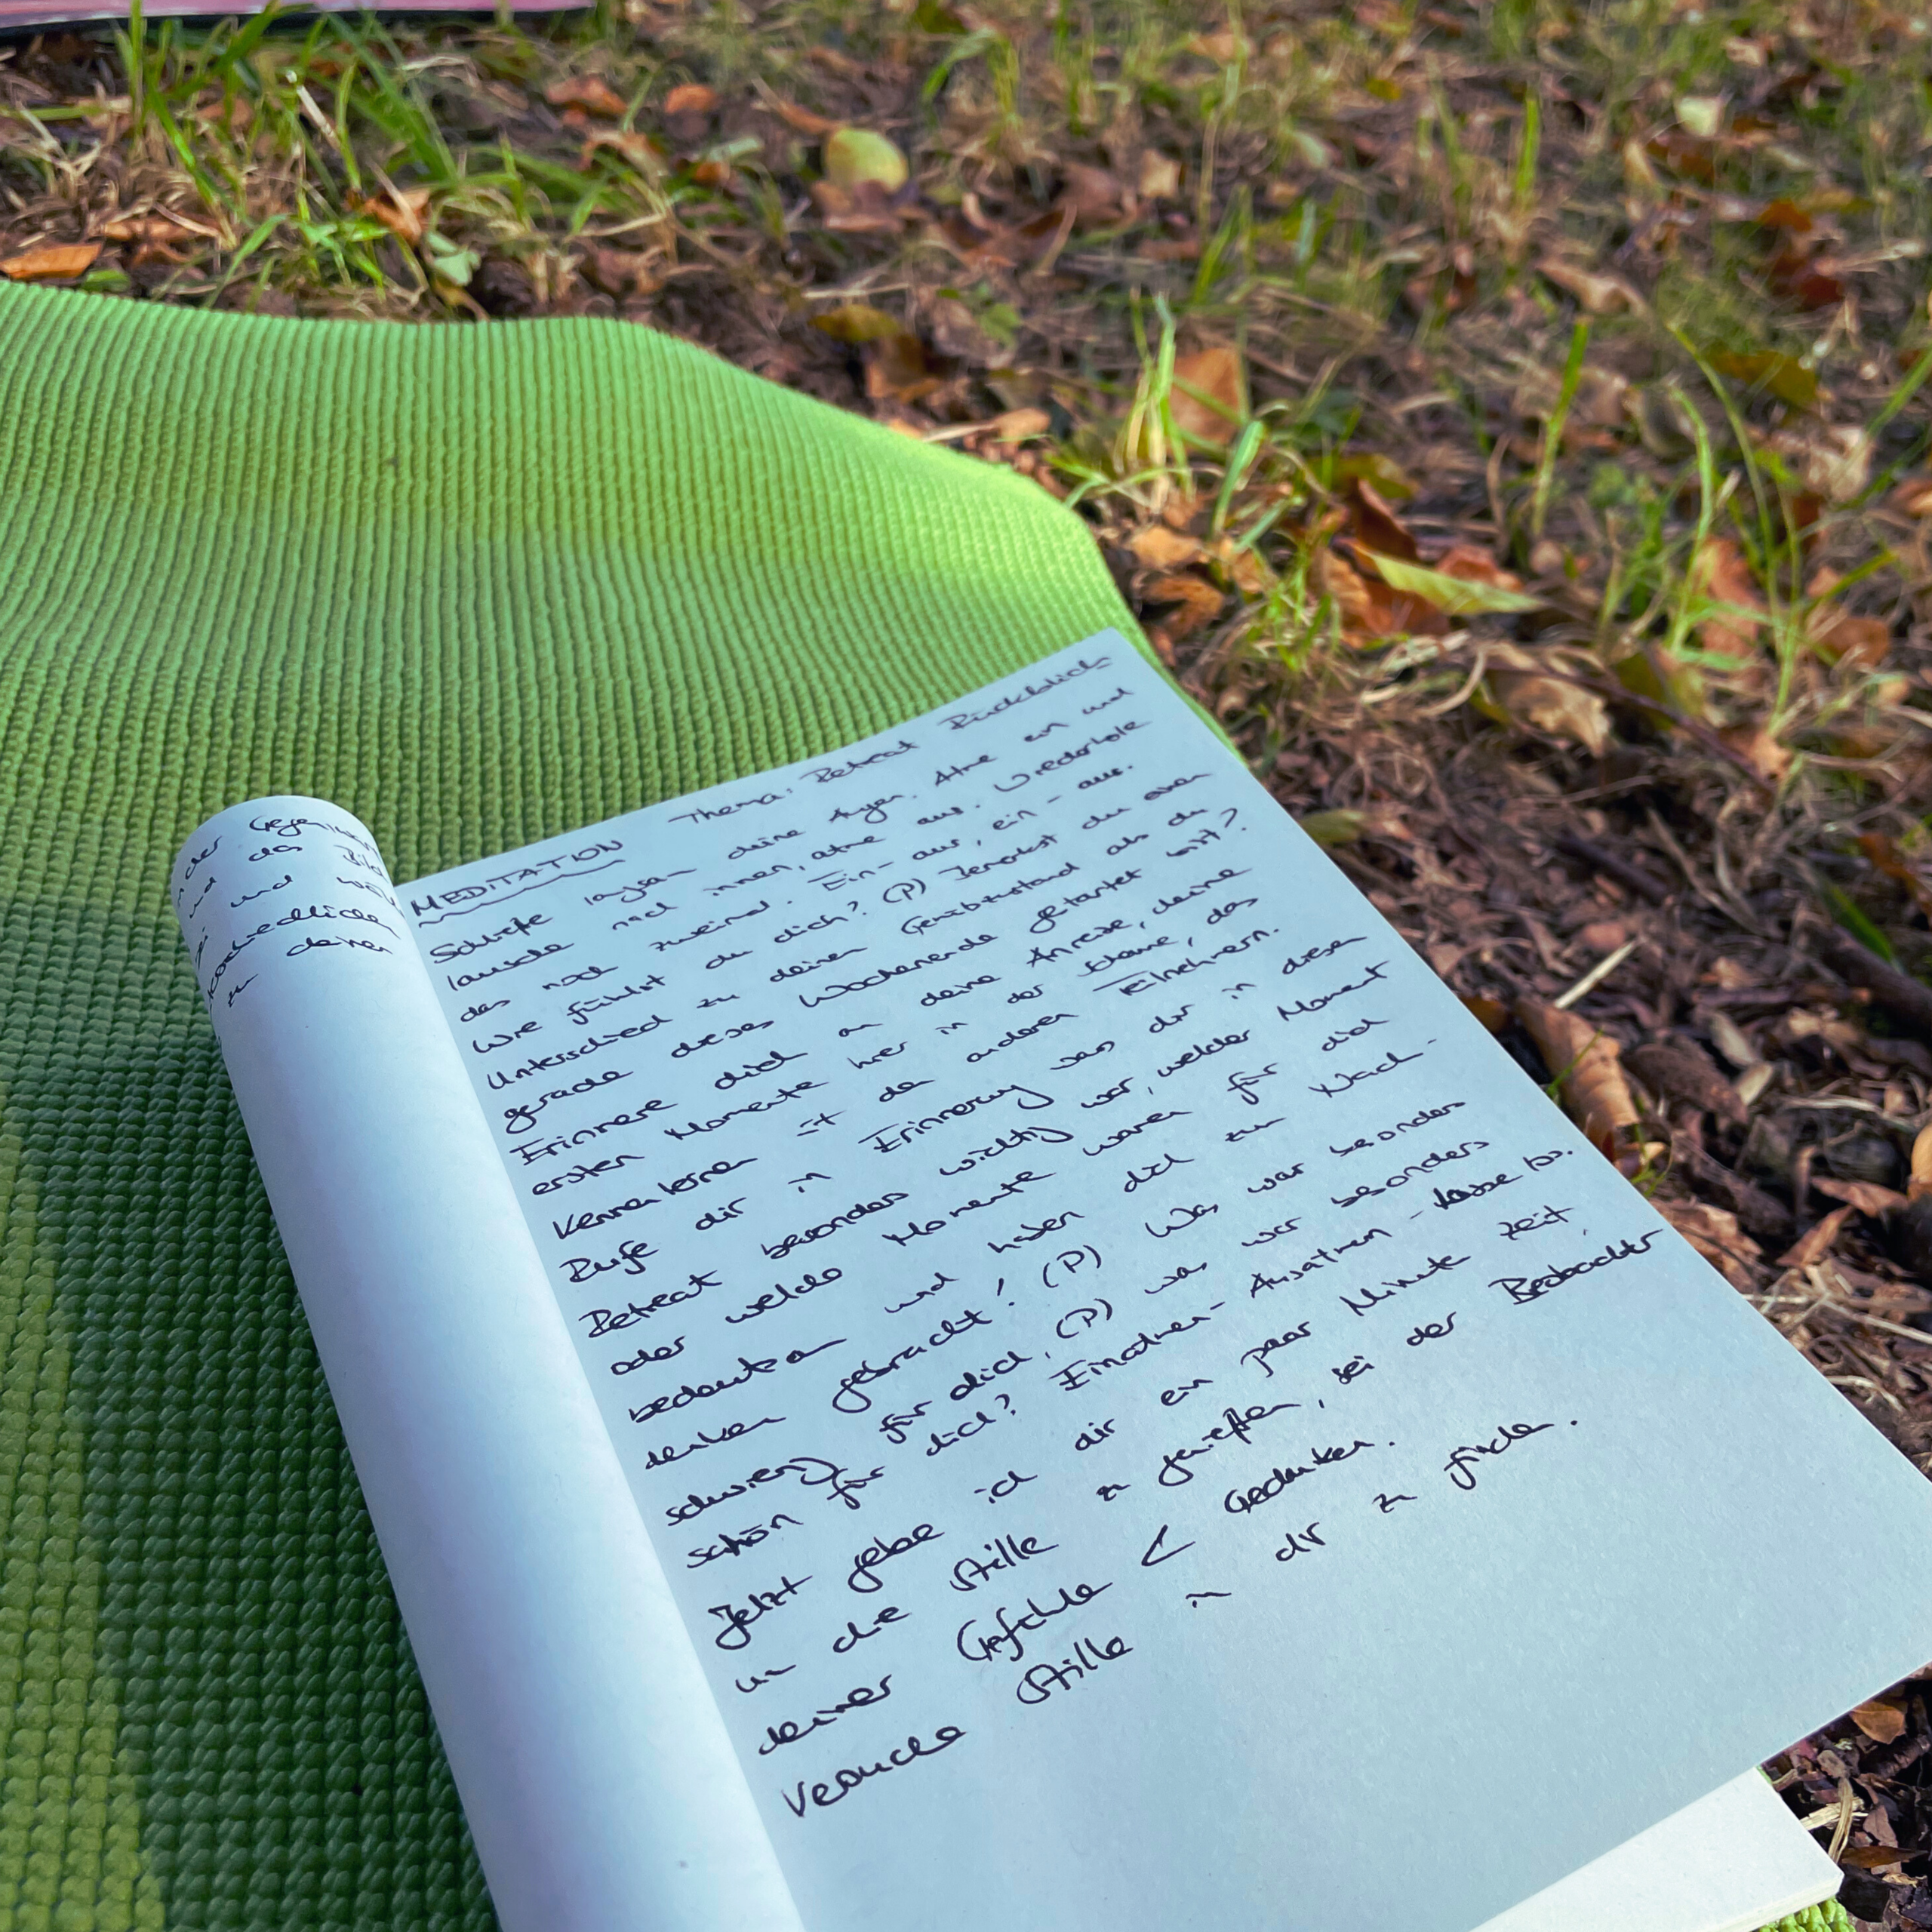 in der Gegenwart
und das Bild
sei und
unterschiedlichen
zu deinen
MEDITATION Thema: Retreat Rückblick
Schließe langsam deine Augen. Atme ein und
lausche nach innen, atme aus. Wiederhole
das noch zweimal. Ein - aus, ein - aus.
Wie fühlst du dich? (P) Bemerkst du einen
Unterschied zu deinem Gemütszustand als du
gerade dieses Wochenende gestartet bist?
Erinnere dich an deine Anreise, deine
ersten Momente hier in der Scheune, das
Kennenlernen mit den anderen Teilnehmern.
Rufe dir in Erinnerung was dir in diesem
Retreat besonders wichtig war, welcher Moment
oder welche Momente waren für dich
bedeutsam und haben dich zum Nach-
denken gebracht! (P) Was war besonders
schwierig für dich, (P) was war besonders
schön für dich? Einatmen - Ausatmen - lasse los.
Jetzt gebe ich dir ein paar Minute Zeit,
um die Stille zu genießen, sei der Beobachter
deiner Gefühle & Gedanken.
Versuche Stille in dir zu finden.